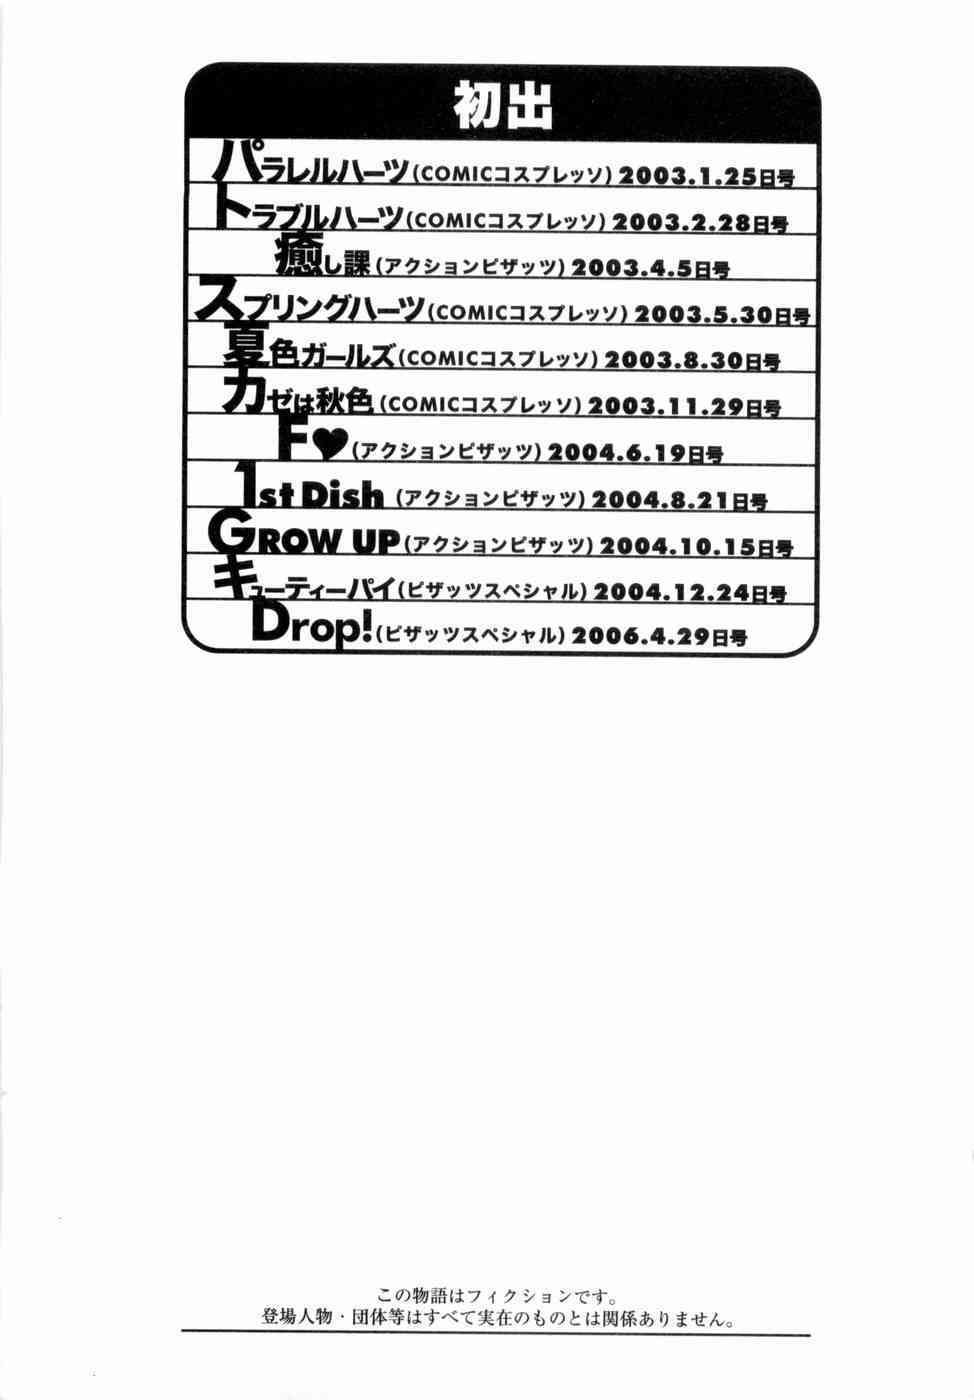 初出
パラレルハーツ(COMICコスプレッソ)2003.1.25日号
トラブルハーツ(COMICコスプレッソ)2003.2.28日号
癒し課(アクションピザッツ)2003.4.5日号
スプリングハーツ(COMICコスプレッソ)2003.5.30日号
夏色ガールズ(COMICコスプレッソ)2003.8.30日号
カゼは秋色(COMICコスプレッソ)2003.11.29日号
F♥(アクションピザッツ)2004.6.19日号
1st Dish(アクションピザッツ)2004.8.21日号
GROW UP(アクションピザッツ)2004.10.15日号
キューティーパイ(ピザッツスペシャル)2004.12.24日号
Drop!(ピザッツスペシャル)2006.4.29日号
この物語はフィクションです。
登場人物・団体等はすべて実在のものとは関係ありません。